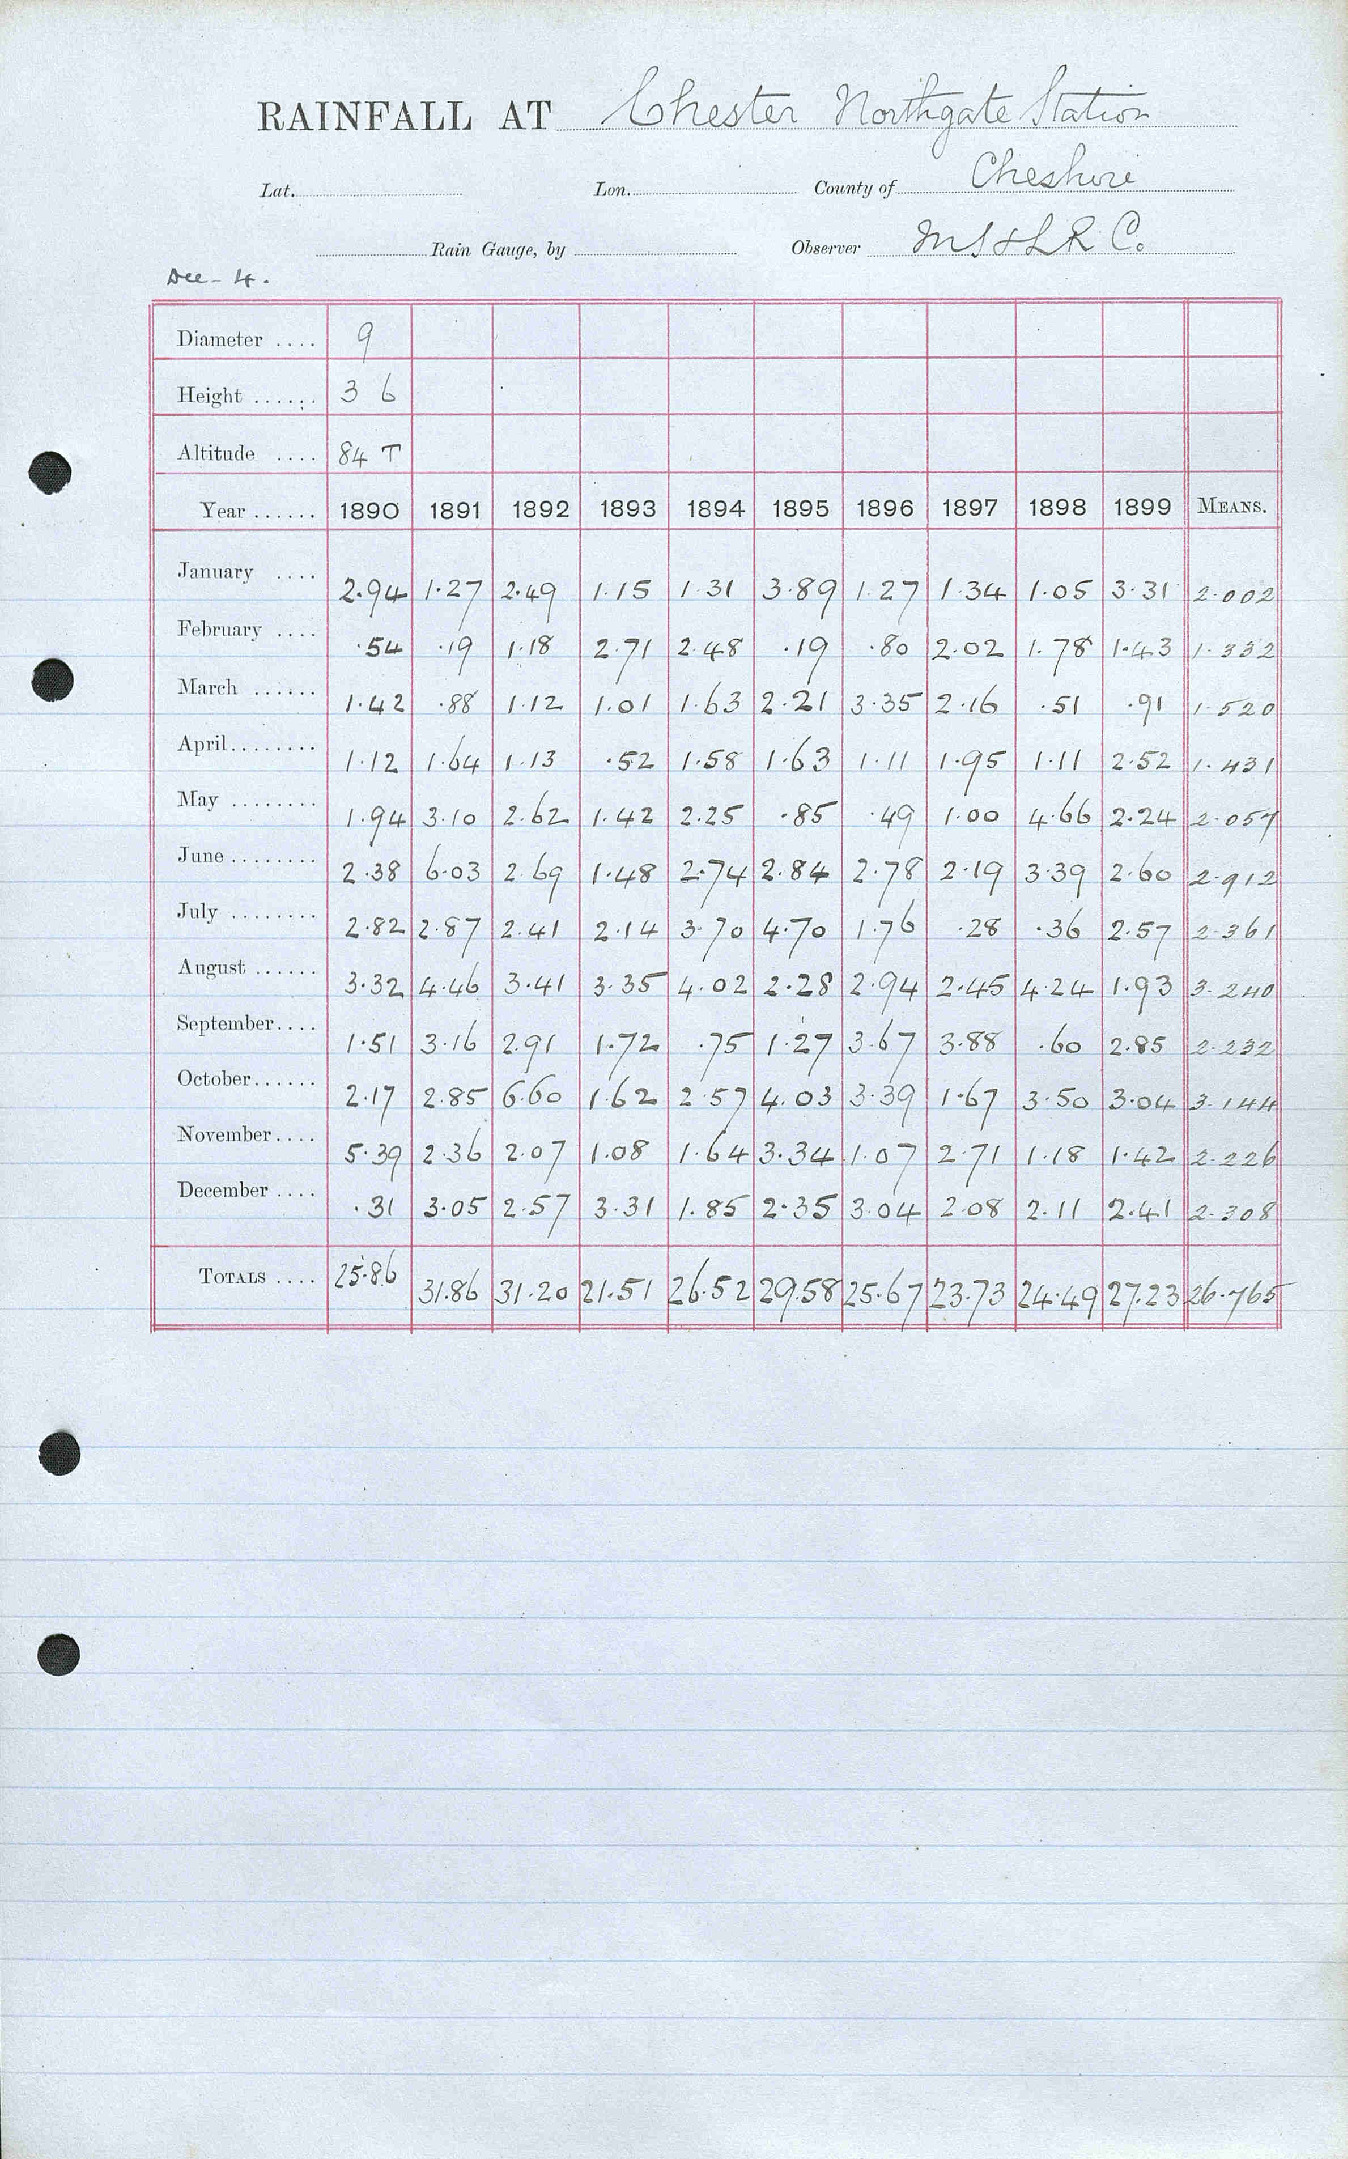 RAINFALL AT Chester Northgate Station
Lat. Lon. County of Cheshire
Rain Gauge, by Observer M S & L R Co.
Dec - 4.
Diameter .... 9
Height ...... 3 6
Altitude .... 84 T
Year ...... 1890 1891 1892 1893 1894 1895 1896 1897 1898 1899 MEANS.
January .... 2.94 1.27 2.49 1.15 1.31 3.89 1.27 1.34 1.05 3.31 2.002
February .... .54 .19 1.18 2.71 2.48 .19 .80 2.02 1.78 1.43 1.332
March ...... 1.42 .88 1.12 1.01 1.63 2.21 3.35 2.16 .51 .91 1.520
April........ 1.12 1.64 1.13 .52 1.58 1.63 1.11 1.95 1.11 2.52 1.431
May ........ 1.94 3.10 2.62 1.42 2.25 .85 .49 1.00 4.66 2.24 2.057
June ........ 2.38 6.03 2.69 1.48 2.74 2.84 2.78 2.19 3.39 2.60 2.912
July ........ 2.82 2.87 2.41 2.14 3.70 4.70 1.76 .28 .36 2.57 2.361
August ...... 3.32 4.46 3.41 3.35 4.02 2.28 2.94 2.45 4.24 1.93 3.240
September.... 1.51 3.16 2.91 1.72 .75 1.27 3.67 3.88 .60 2.85 2.232
October...... 2.17 2.85 6.60 1.62 2.57 4.03 3.39 1.67 3.50 3.04 3.144
November.... 5.39 2.36 2.07 1.08 1.64 3.34 1.07 2.71 1.18 1.42 2.226
December .... .31 3.05 2.57 3.31 1.85 2.35 3.04 2.08 2.11 2.41 2.308
TOTALS .... 25.86 31.86 31.20 21.51 26.52 29.58 25.67 23.73 24.49 27.23 26.765